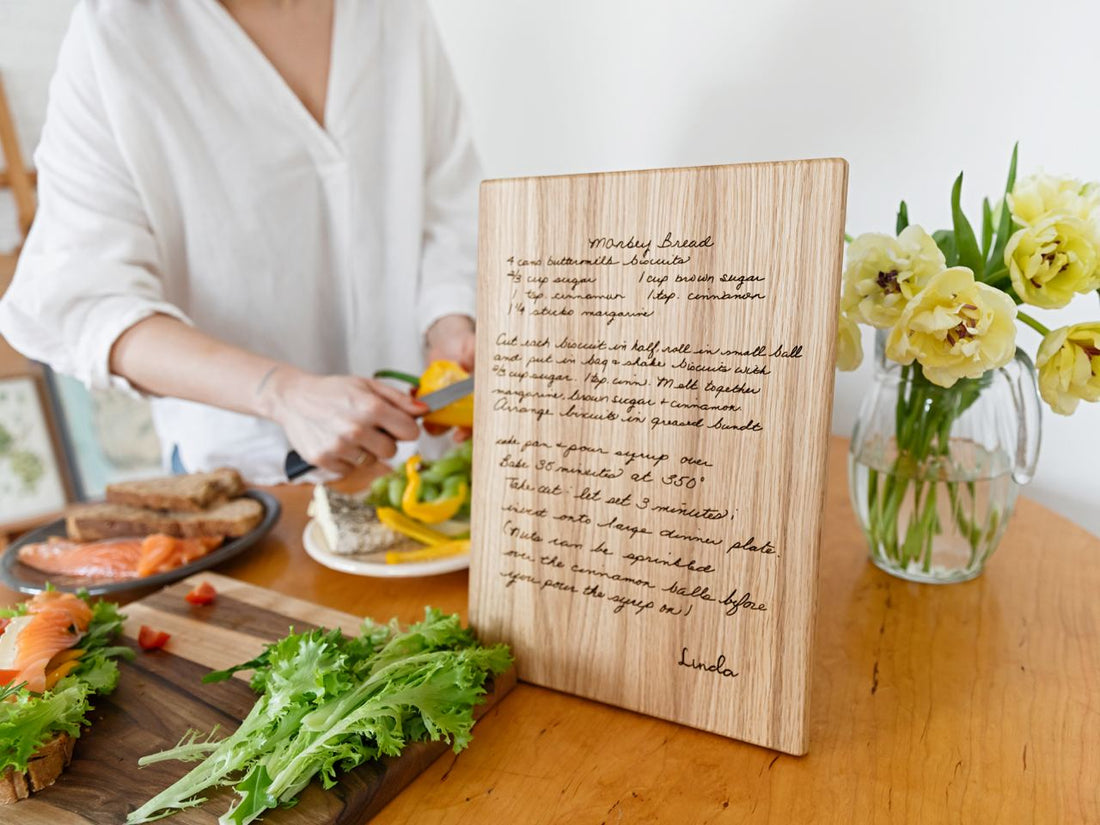 Monkey Bread
4 cans buttermilk biscuits
2/3 cup sugar 1 cup brown sugar
1 tsp. cinnamon 1 tsp. cinnamon
1 1/4 sticks margarine
Cut each biscuit in half, roll in small ball
and put in bag & shake biscuits with
2/3 cup sugar, 1 tsp cinn. Melt together
margarine, brown sugar & cinnamon.
Arrange biscuits in greased bundt
cake pan & pour syrup over
Bake 35 minutes at 350°
Take out: let set 3 minutes;
invert onto large dinner plate.
(Nuts can be sprinkled
over the cinnamon balls before
you pour the syrup on)
Linda